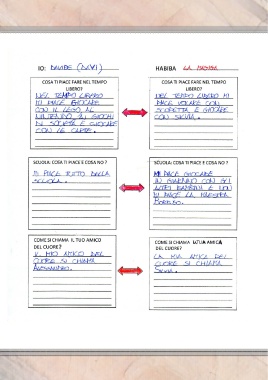 IO: DAVIDE (DIVI)
HABIBA LA
COSA TI PIACE FARE NEL TEMPO
LIBERO?
NEL TEMPO LIBERO
MI PIACE GIOCARE
CON IL LEGO, AL
NINTENDO, AI GIOCHI
DI SOCIETÀ E GIOCARE
CON LE CARTE.
COSA TI PIACE FARE NEL TEMPO
LIBERO?
NEL TEMPO LIBERO MI
PIACE CON
E GIOCARE
CON SILVIA.
SCUOLA: COSA TI PIACE E COSA NO ?
MI PIACE TUTTO DELLA
SCUOLA.
SCUOLA: COSA TI PIACE E COSA NO ?
MI PIACE GIOCARE
IN GIARDINO CON GLI
ALTRI BAMBINI E NON
MI PIACE LA MAESTRA
COME SI CHIAMA IL TUO AMICO
DEL CUORE?
IL MIO AMICO DEL
CUORE SI CHIAMA
ALESSANDRO.
COME SI CHIAMA LA TUA AMICA
DEL CUORE?
LA MIA AMICA DEL
CUORE SI CHIAMA
SILVIA.